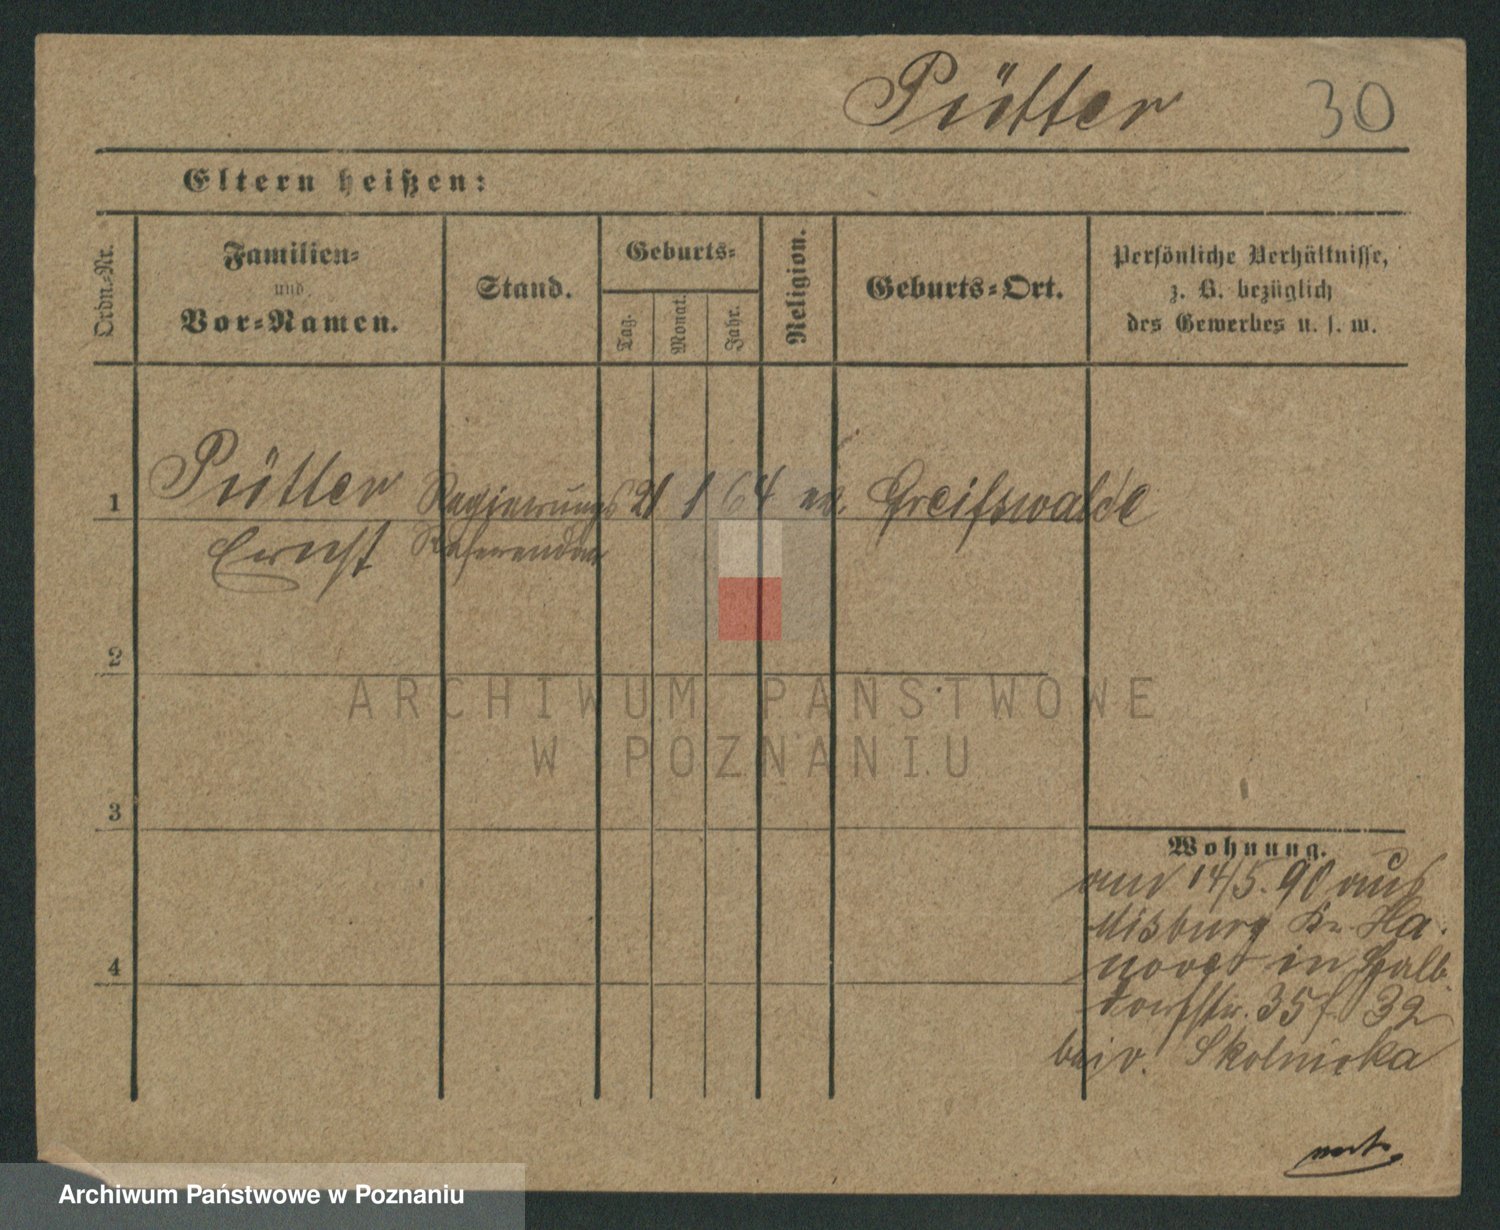 Pütter 30
Eltern heißen:
Ordn.-Nr.
Familien-
und
Vor-Namen.
Stand.
Geburts-
Tag.
Monat.
Jahr.
Religion.
Geburts-Ort.
Persönliche Verhältnisse,
z. B. bezüglich
des Gewerbes u. s. w.
1 Pütter Regierungs 21 1 64 ev. Greifswalde
Ernst Referendar
2
3
4
Wohnung.
am 14/5. 90 aus
Misburg Kr. Ha-
nover in Halb-
dorfstr. 35 f. 32
bei v. Skolnicka
vert.
ARCHIWUM PAŃSTWOWE
W POZNANIU
Archiwum Państwowe w Poznaniu